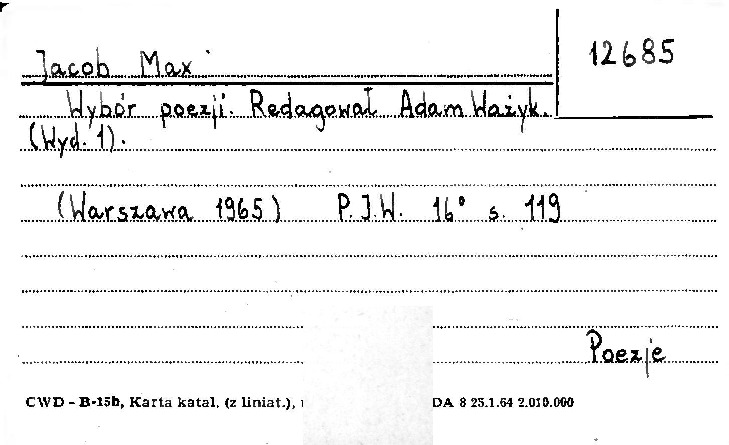 Jacob Max
12685
Wybór poezji. Redagował Adam Ważyk.
(Wyd. 1).
(Warszawa 1965) P.I.W. 16° s. 119
Poezje
CWD - B-15b, Karta katal. (z liniat.), DA 8 25.1.64 2.010.000